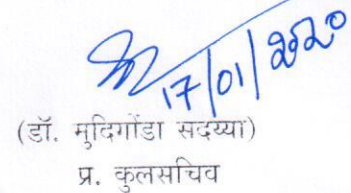 17/01/2020
(डॉ. मुदिगोंडा सदय्या)
प्र. कुलसचिव